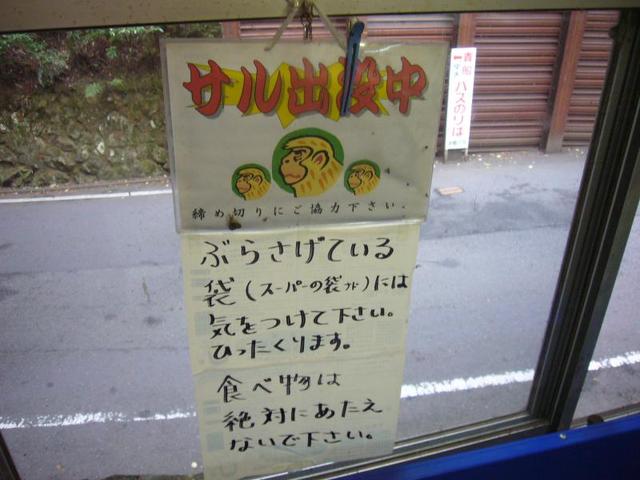 サル出没中
締め切りにご協力下さい。
ぶらさげている
袋(スーパーの袋など)には
気をつけて下さい。
ひったくります。
食べ物は
絶対にあたえ
ないで下さい。
貴船
バスのりば